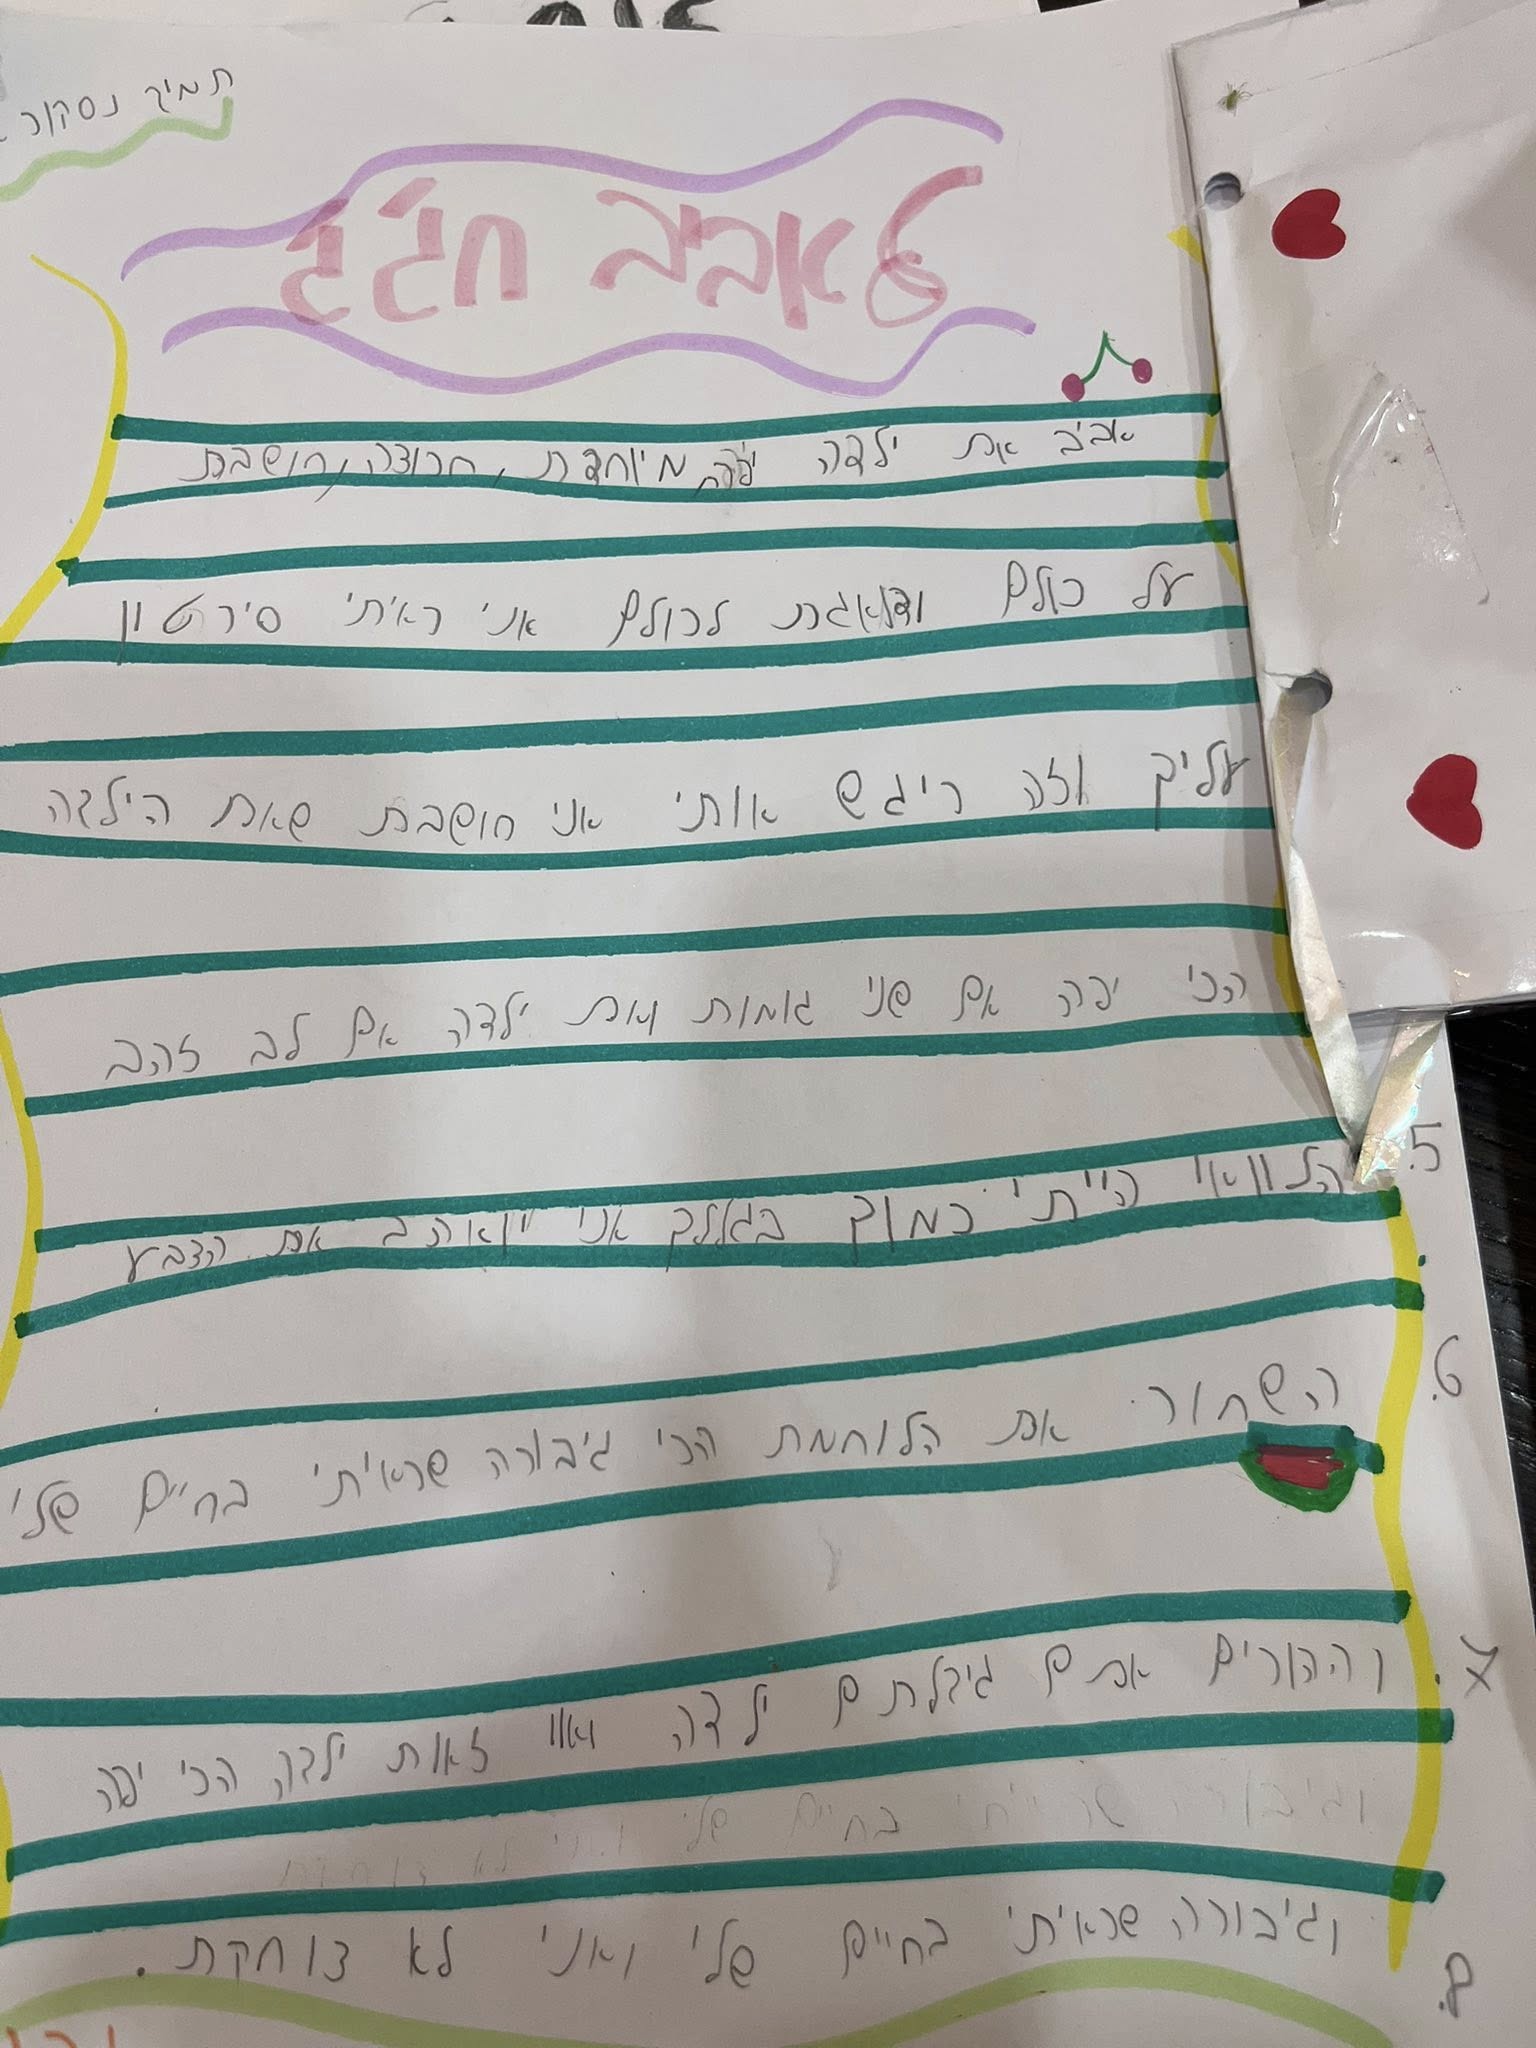 תמיך נסקור
לאביב חג'ג'
אביב את ילדה יפה, מיוחדת, חרוצה, חושבת
על כולם ודואגת לכולם אני ראיתי סירטון
עליך וזה ריגש אותי אני חושבת שאת הילדה
הכי יפה אם שני גומות ואת ילדה אם לב זהב
5. הלוואי הייתי כמוך בגללך אני אוהב את הצבע
6. השחור את הלוחמת הכי גיבורה שראיתי בחיים שלי
7. וההורים אתם גידלתם ילדה וואו זאות ילדה הכי יפה
וגיבורה שראיתי בחיים שלי ואני לא צוחקת
8. וגיבורה שראיתי בחיים שלי ואני לא צוחקת.